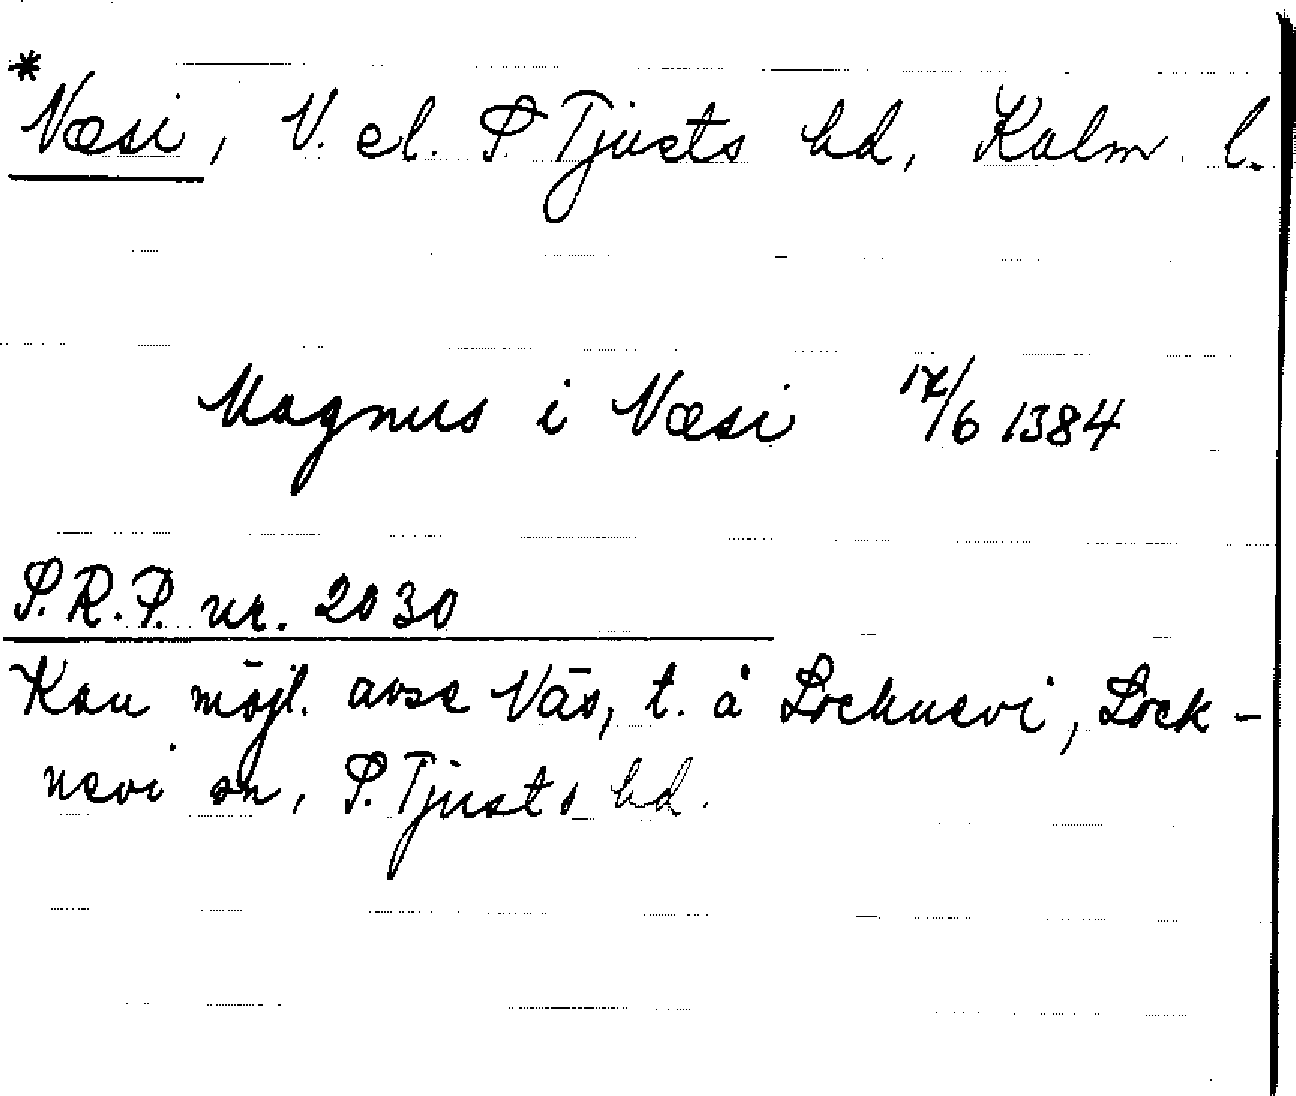 *Næsi, N. el. S. Tjusts hd, Kalm. l.
Magnus i Næsi 17/6 1384
S.R.P. nr. 2030
Kan möjl. avse Näs, t. å Locknevi, Lock-
nevi sn, S. Tjusts hd.